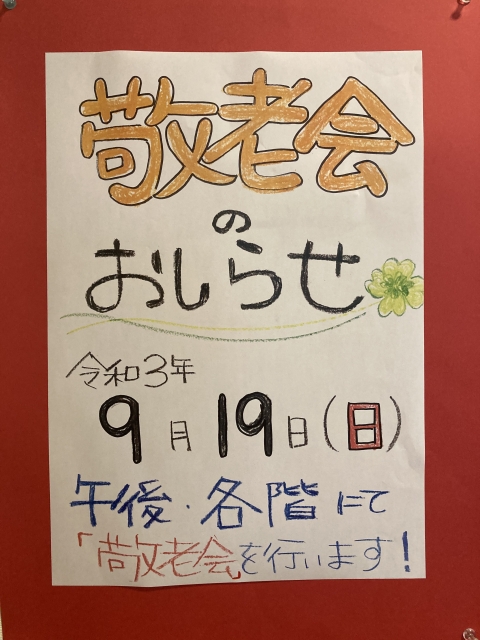 敬老会
の
おしらせ
令和3年
9月19日(日)
午後・各階にて
「敬老会」を行います!